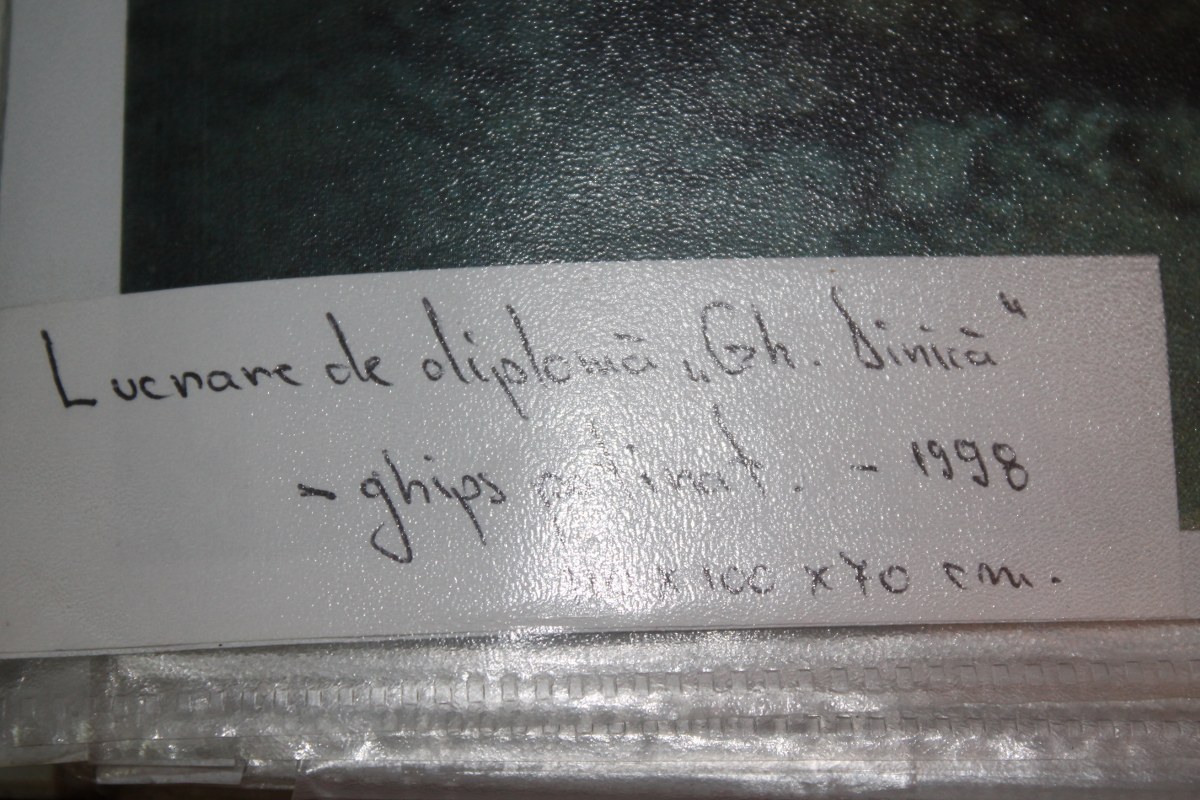 Lucrare de diplomă „Gh. Dinică"
- ghips patinat. - 1998
x 100 x 70 cm.